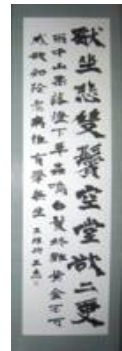 獨坐悲雙鬢空堂欲二更
雨中山果落燈下草蟲鳴白髮終難變黃金不可
成欲知除老病惟有學無生 王維詩